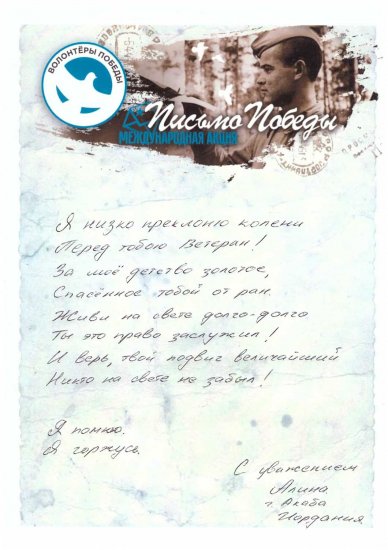 ВОЛОНТЁРЫ ПОБЕДЫ
Письмо Победы
МЕЖДУНАРОДНАЯ АКЦИЯ
Я низко преклоню колени
Перед тобою Ветеран!
За моё детство золотое,
Спасённое тобой от ран.
Живи на свете долго-долго
Ты это право заслужил!
И верь, твой подвиг величайший
Никто на свете не забыл!
Я помню.
Я горжусь.
С уважением
Алина
г. Акаба
Иордания